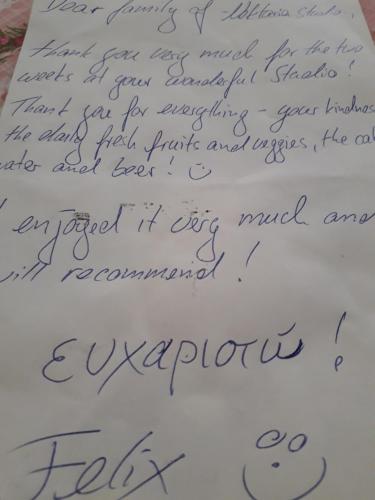 Dear family of Viktoria Studio,
Thank you very much for the two
weeks at your wonderful Studio!
Thank you for everything - your kindness
the daily fresh fruits and veggies, the
water and beer!
I enjoyed it very much and
will recommend!
ευχαριστώ!
Felix